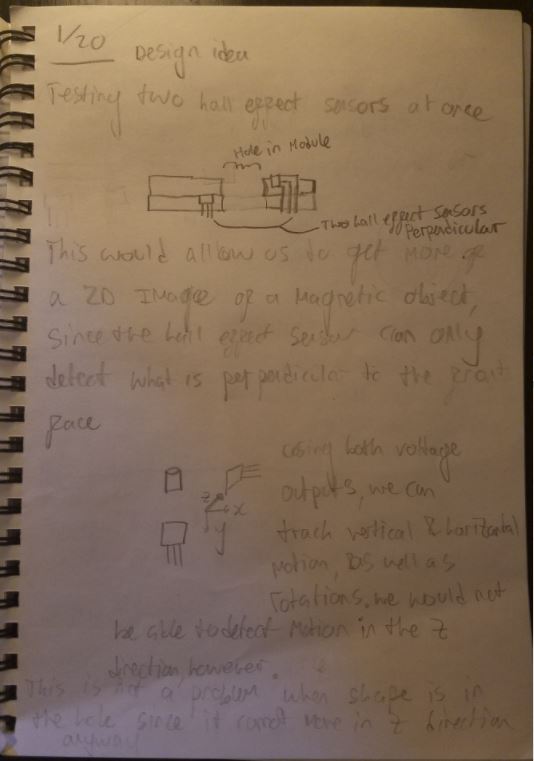 1/20 Design idea
Testing two hall effect sensors at once
Hole in Module
Two hall effect sensors
Perpendicular
This would allow us to get more of
a 2D Image of a Magnetic object,
since the hall effect sensor can only
detect what is perpendicular to the front
face
Using both voltage
outputs, we can
z x
y
track vertical & horizontal
motion, as well as
rotations. we would not
be able to detect Motion in the Z
direction, however.
This is not a problem when shape is in
the hole since it cannot move in z direction
anyway